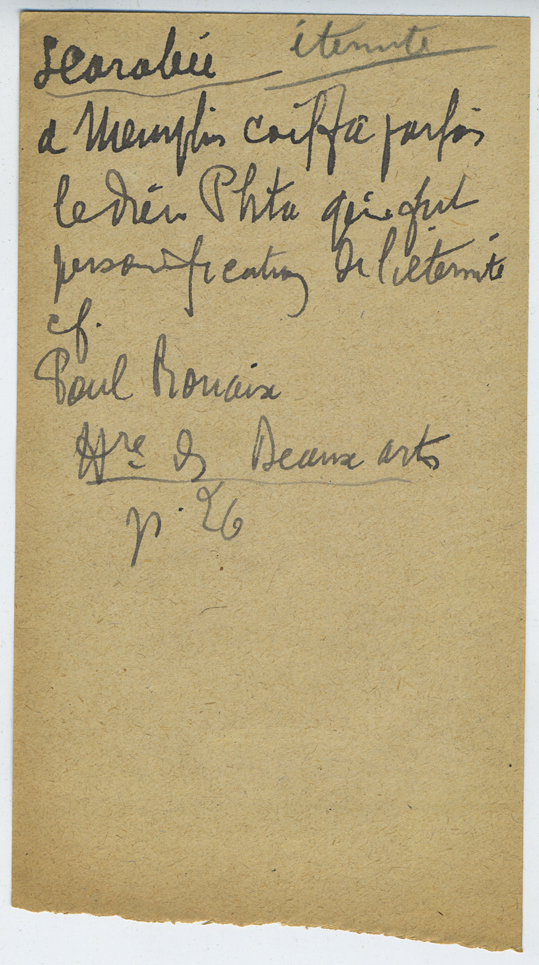 Scarabée éternité
à Memphis coiffa parfois
le dieu Phta qui fut
personification de l'éternité
cf.
Paul Rouaix
Hre des Beaux arts
p. 26